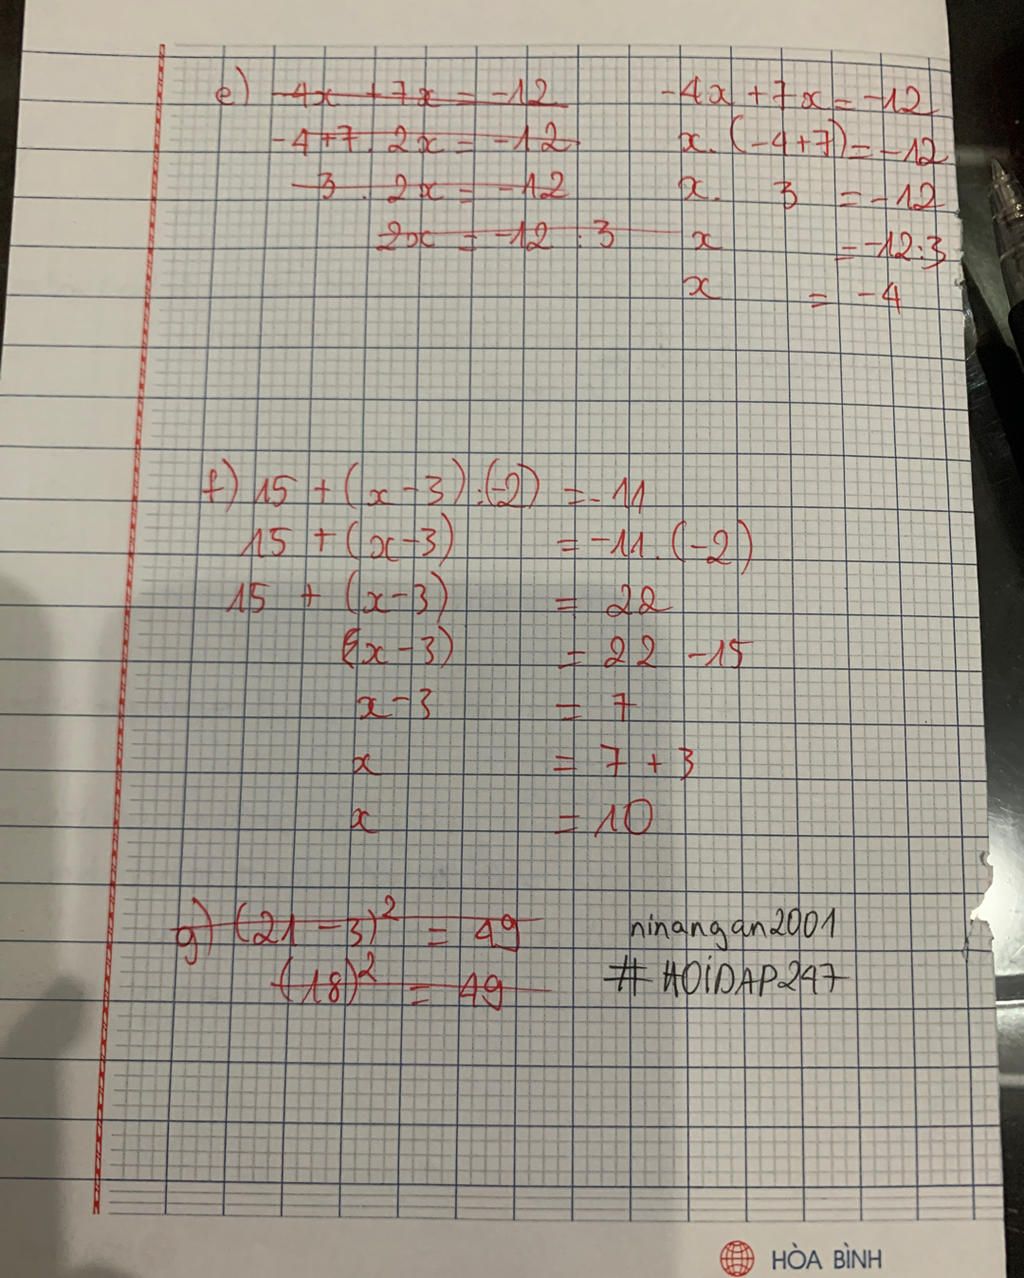 e) -4x + 7x = -12
-4+7 . 2x = -12
3 . 2x = -12
2x = -12 : 3
-4x + 7x = -12
x. (-4+7) = -12
x. 3 = -12
x = -12:3
x = -4
f) 15 + (x-3):(-2) = -11
15 + (x-3) = -11. (-2)
15 + (x-3) = 22
(x-3) = 22 -15
x-3 = 7
x = 7 + 3
x = 10
g) (21-3)² = 49
(18)² = 49
ninangan2001
#HOiDAP247
HÒA BÌNH